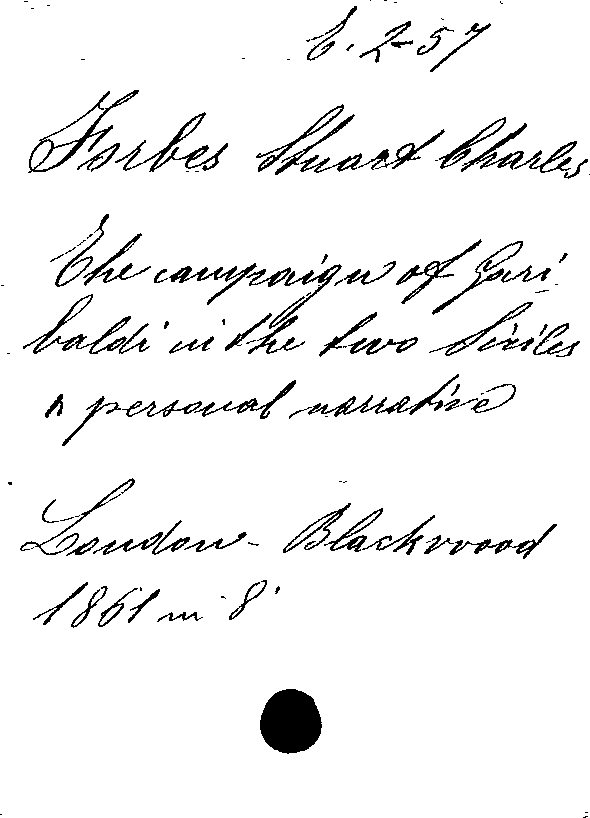 E. 2-57
Forbes Stuart Charles
The campaign of Gari
baldi in the two Siciles
a personal narrative
London - Blackwood
1861 in 8°